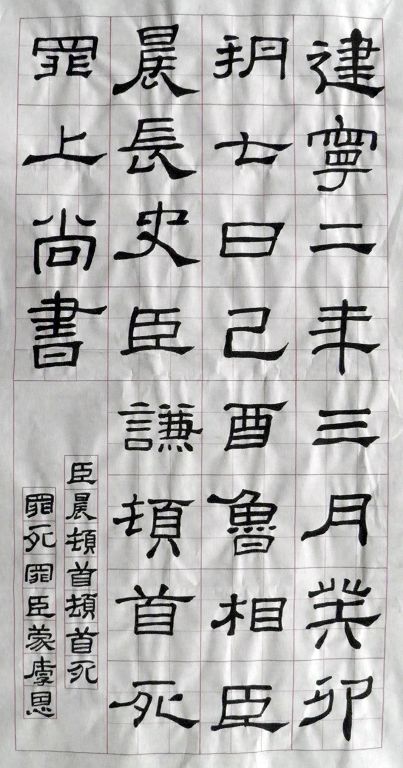 建寧二年三月癸卯
朔七日己酉魯相臣
晨長史臣謙頓首死
罪上尚書
臣晨頓首頓首死
罪死罪臣蒙厚恩